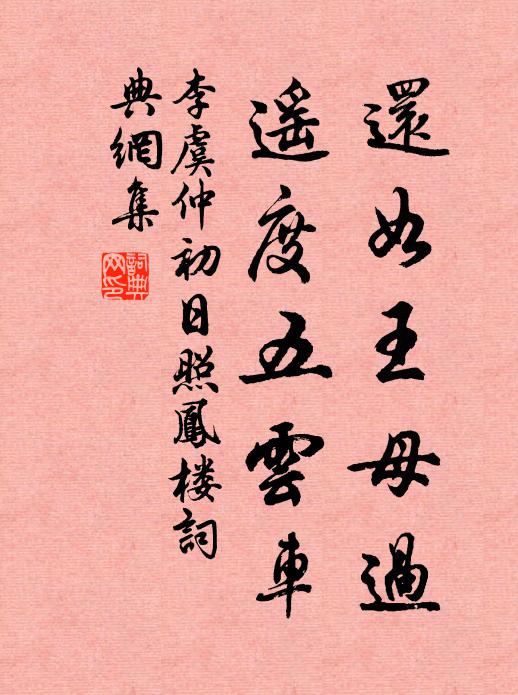 還如王母過
遥度五雲車
李虞仲初日照鳳楼詞
典網集
詞典
网印